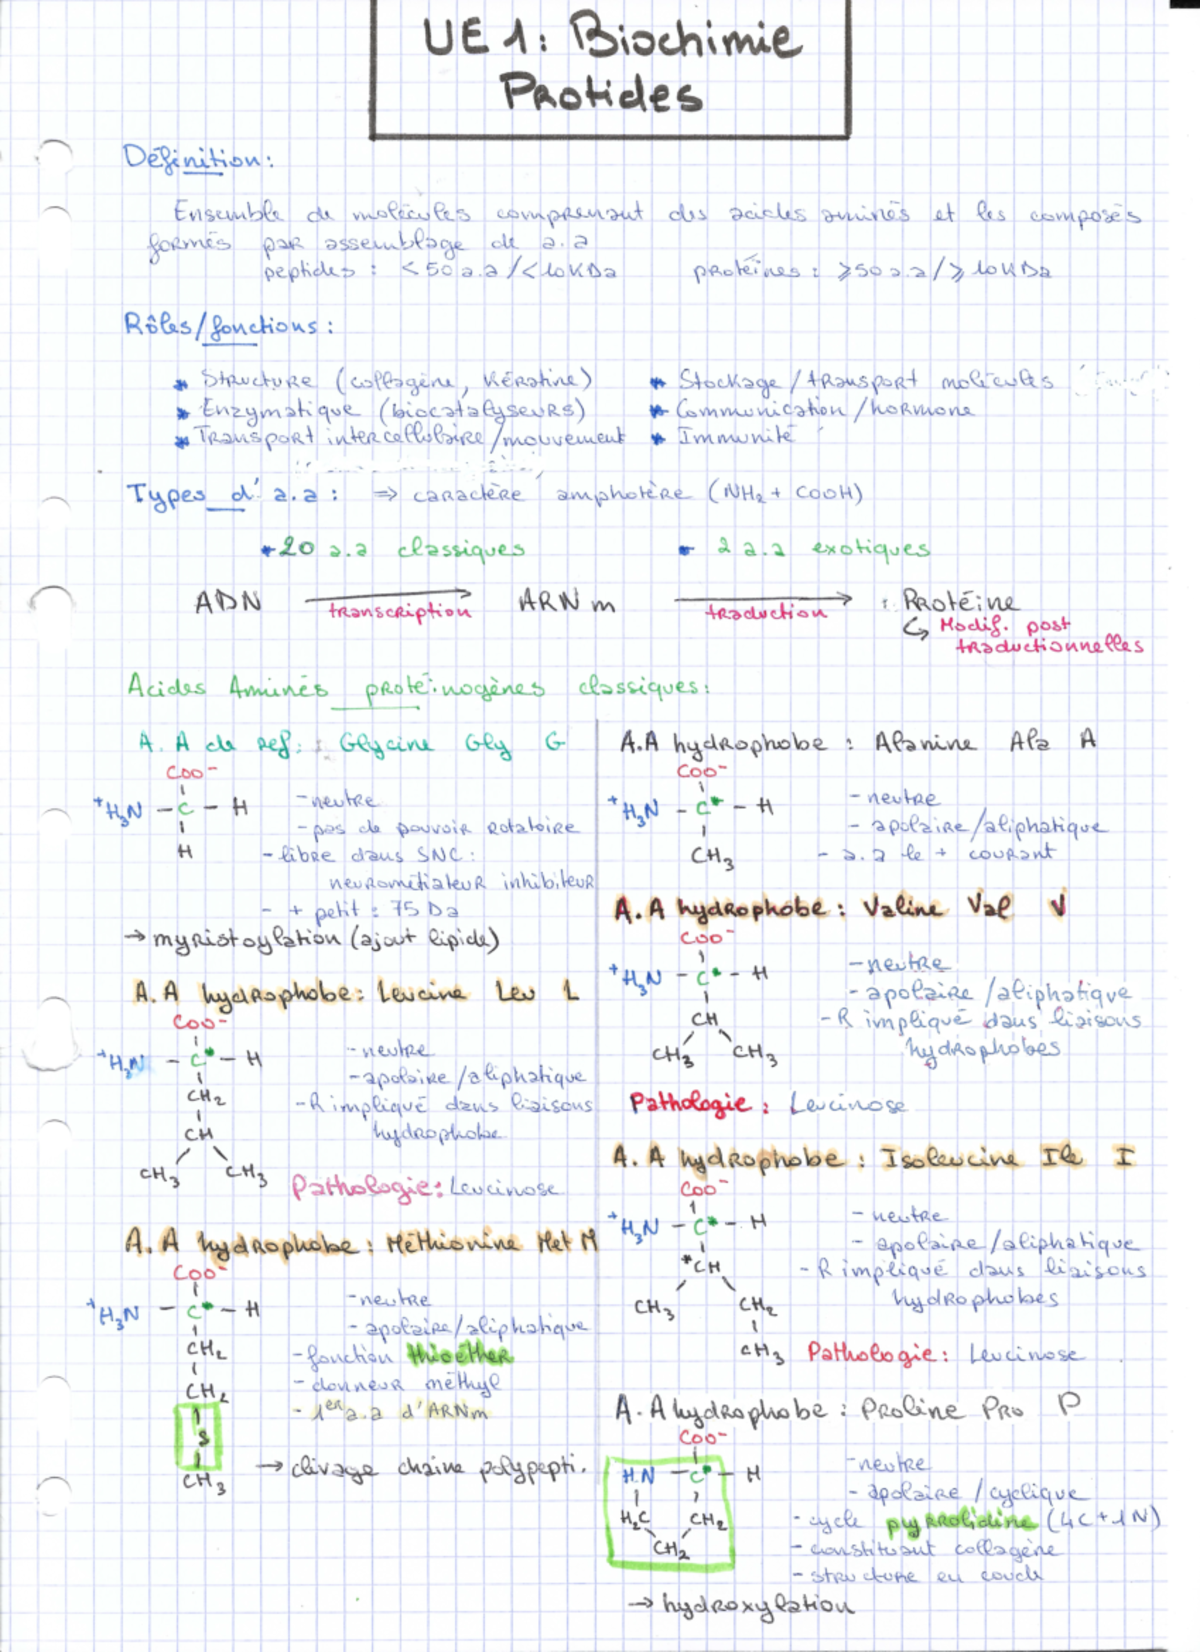 UE 1: Biochimie
Protides
Définition:
Ensemble de molécules comprenant des acides aminés et les composés
formés par assemblage de a.a
peptides : <50 a.a/<10KDa protéines : ⩾50 a.a/⩾10KDa
Rôles/fonctions :
* Structure (collagène, Kératine)
* Stockage/transport molécules
* Enzymatique (biocatalyseurs)
* Communication/hormone
* Transport intercellulaire/mouvement
* Immunité
Types d'a.a : ⇒ caractère amphotère (NH₂ + COOH)
* 20 a.a classiques
* 2 a.a exotiques
ADN → transcription ARNm → traduction Protéine
↳ Modif. post
traductionnelles
Acides Aminés protéinogènes classiques:
A. A de ref. : Glycine Gly G
COO⁻
⁺H₃N – C – H
H
- neutre
- pas de pouvoir rotatoire
- libre dans SNC :
neuromédiateur inhibiteur
- + petit : 75 Da
→ myristoylation (ajout lipide)
A.A hydrophobe : Alanine Ala A
COO⁻
⁺H₃N – C* – H
CH₃
- neutre
- apolaire/aliphatique
- a.a le + courant
A.A hydrophobe : Valine Val V
COO⁻
⁺H₃N – C* – H
CH
CH₃ CH₃
- neutre
- apolaire/aliphatique
- R impliqué dans liaisons
hydrophobes
Pathologie : Leucinose
A.A hydrophobe: Leucine Leu L
COO⁻
⁺H₃N – C* – H
CH₂
CH
CH₃ CH₃
- neutre
- apolaire/aliphatique
- R impliqué dans liaisons
hydrophobe
Pathologie: Leucinose
A. A hydrophobe : Isoleucine Ile I
COO⁻
⁺H₃N – C* – H
*CH
CH₃ CH₂
CH₃
- neutre
- apolaire/aliphatique
- R impliqué dans liaisons
hydrophobes
Pathologie : Leucinose
A. A hydrophobe : Méthionine Met M
COO⁻
⁺H₃N – C* – H
CH₂
CH₂
S
CH₃
- neutre
- apolaire/aliphatique
- fonction thioéther
- donneur méthyl
- 1er a.a d'ARNm
→ clivage chaine polypepti.
A. A hydrophobe : Proline Pro P
COO⁻
HN – C* – H
H₂C CH₂
CH₂
- neutre
- apolaire/cyclique
- cycle pyrrolidine (4C+1N)
- constituant collagène
- structure en coude
→ hydroxylation